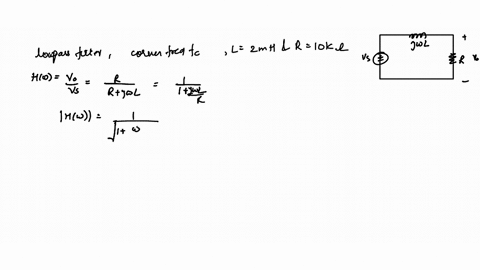 lowpass filter, corner freq fc, L = 2mH & R = 10K Ω
H(ω) = Vo/Vs = R/(R+jωL) = 1/(1+jωL/R)
|H(ω)| = 1/√(1+ ω
jωL
Vs
+
R
Vo
-